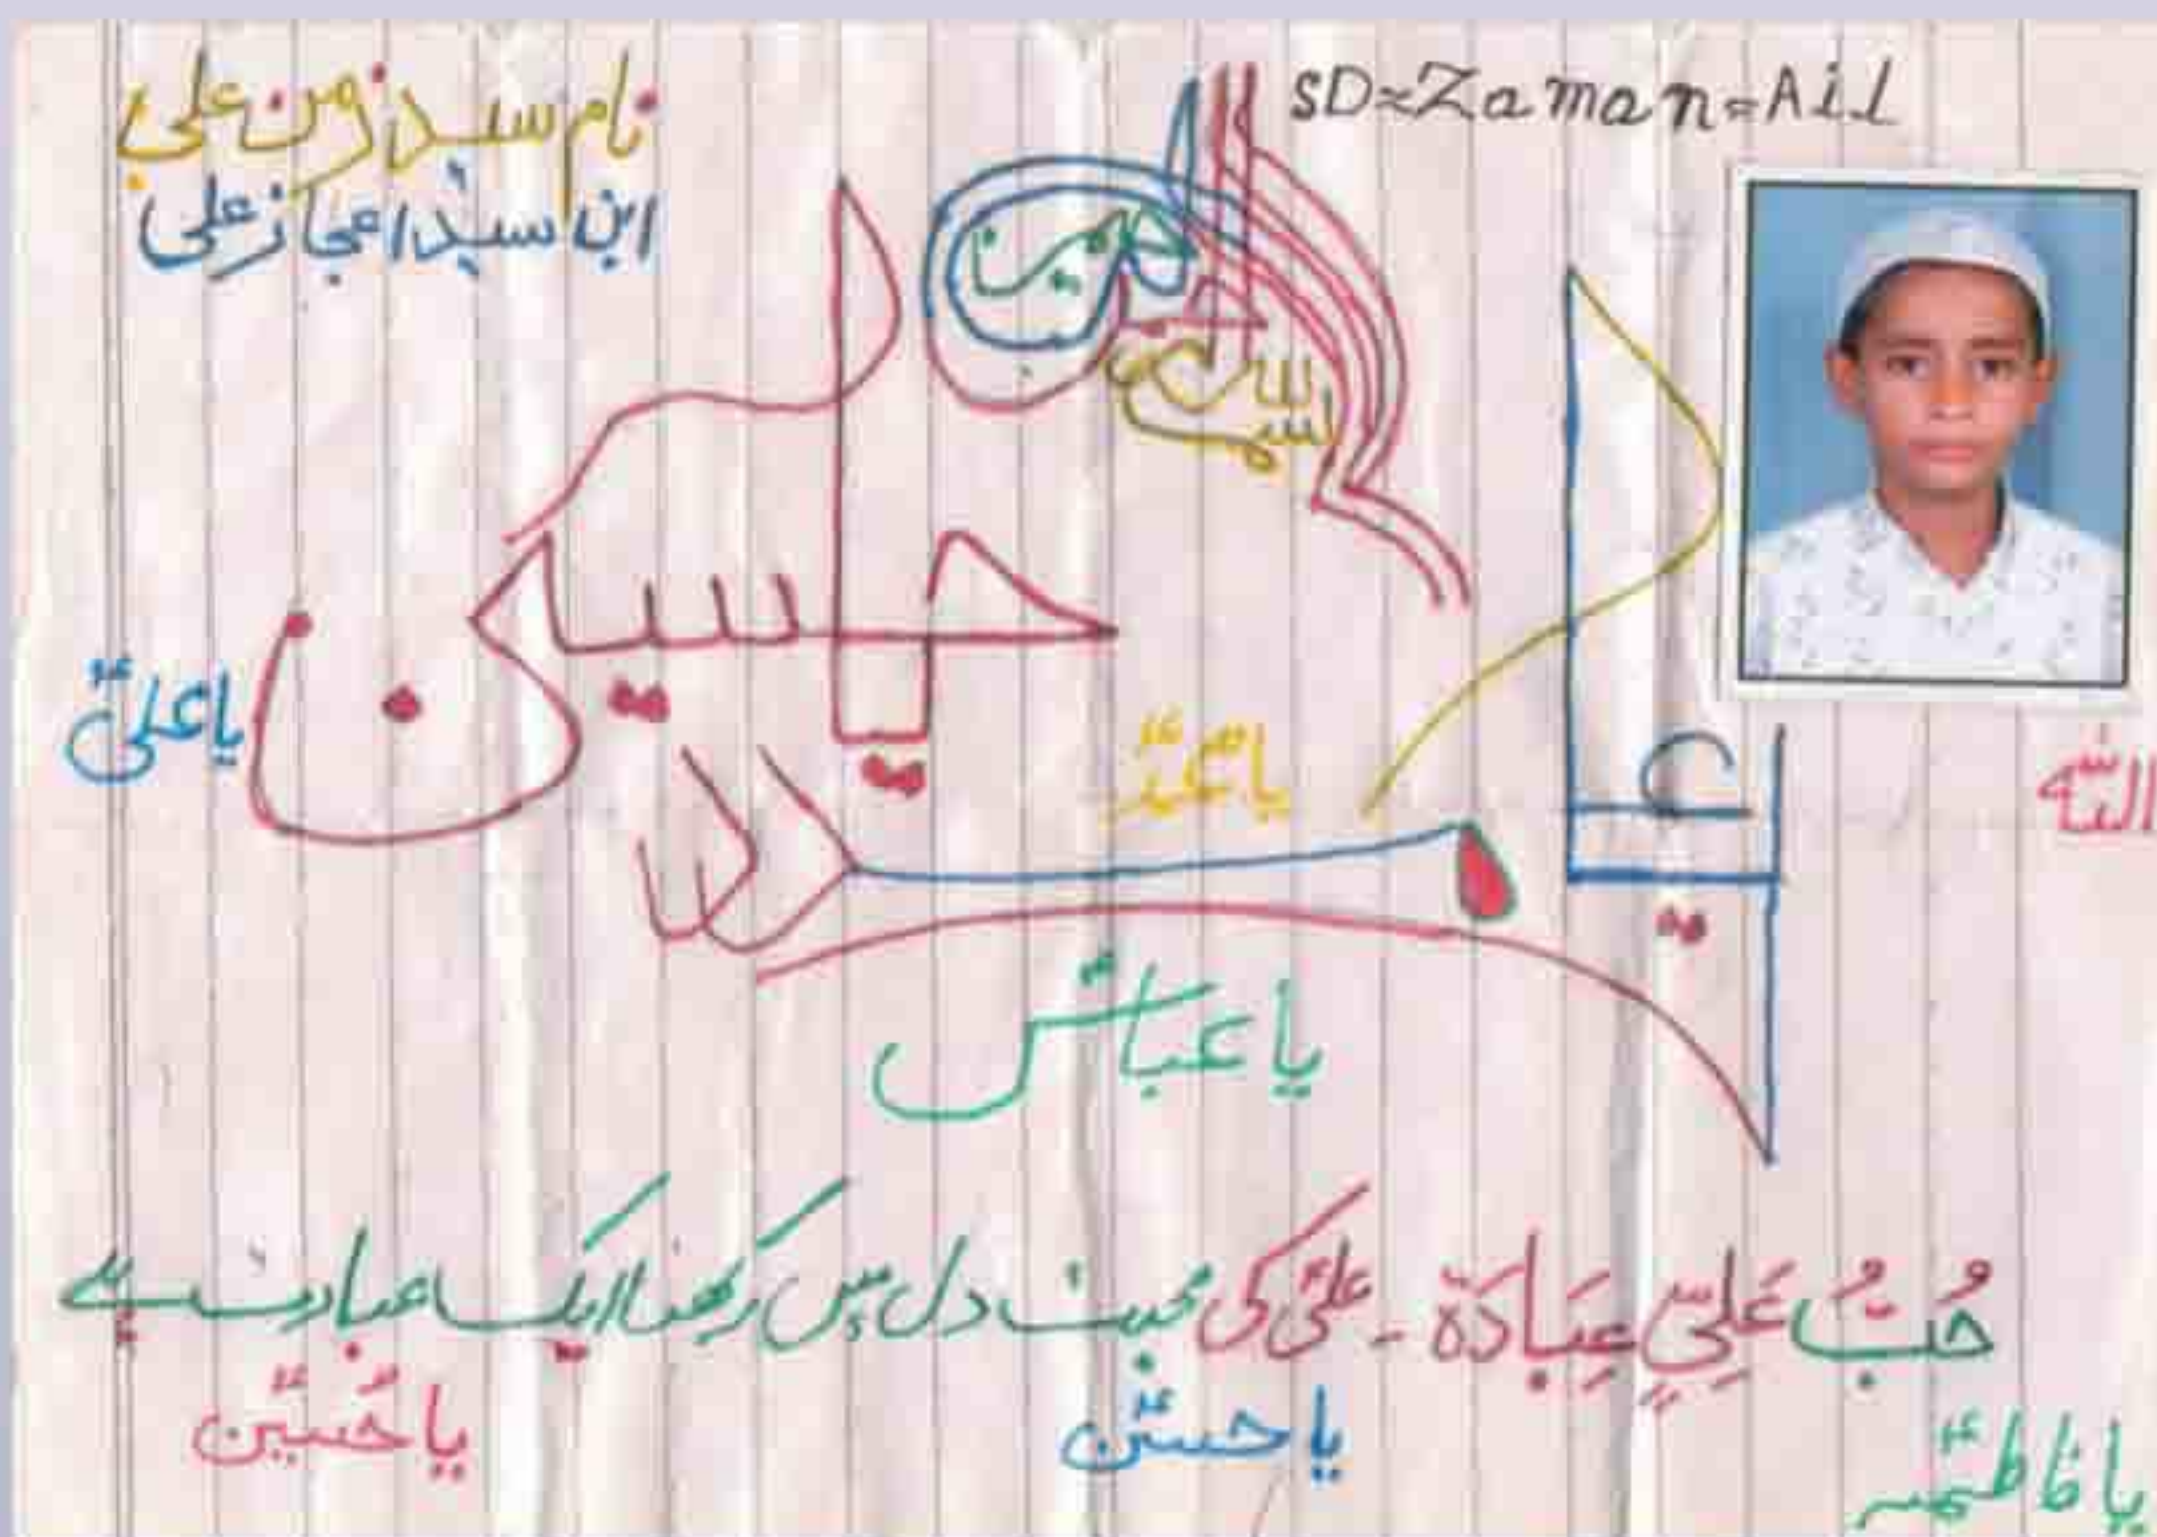 SD=Zaman=Ail
نام سید زمن علی
ابن سید اعجاز علی
یا علیؑ
یا محمدؐ
اللّٰہ
یا حسین
یا علی
مدد
یا عباسؑ
حُبُّ عَلِيٍّ عِبَادَة - علیؑ کی محبت دل میں رکھنا ایک عبادت ہے
یا حُسینؑ
یا حسنؑ
یا فاطمہؑ